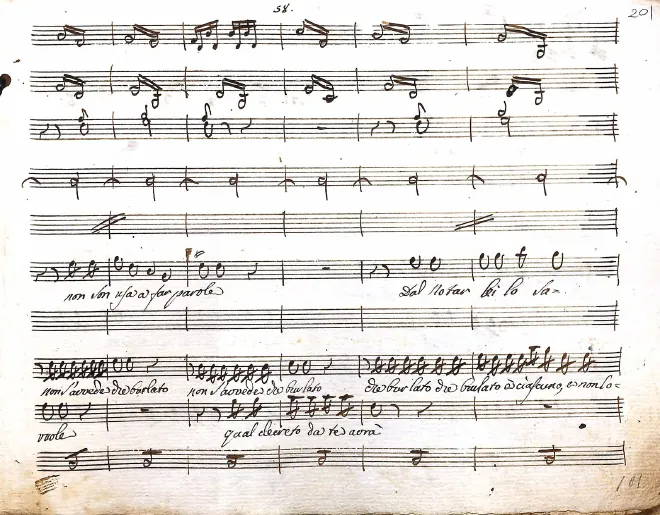 58.
201
non son usa a far parole Dal Notar lei lo sa-
non s'avvede che burlato non s'avvede che burlato che burlato che burlato è ciascuno, e non lo-
vuole qual decreto da te avrà